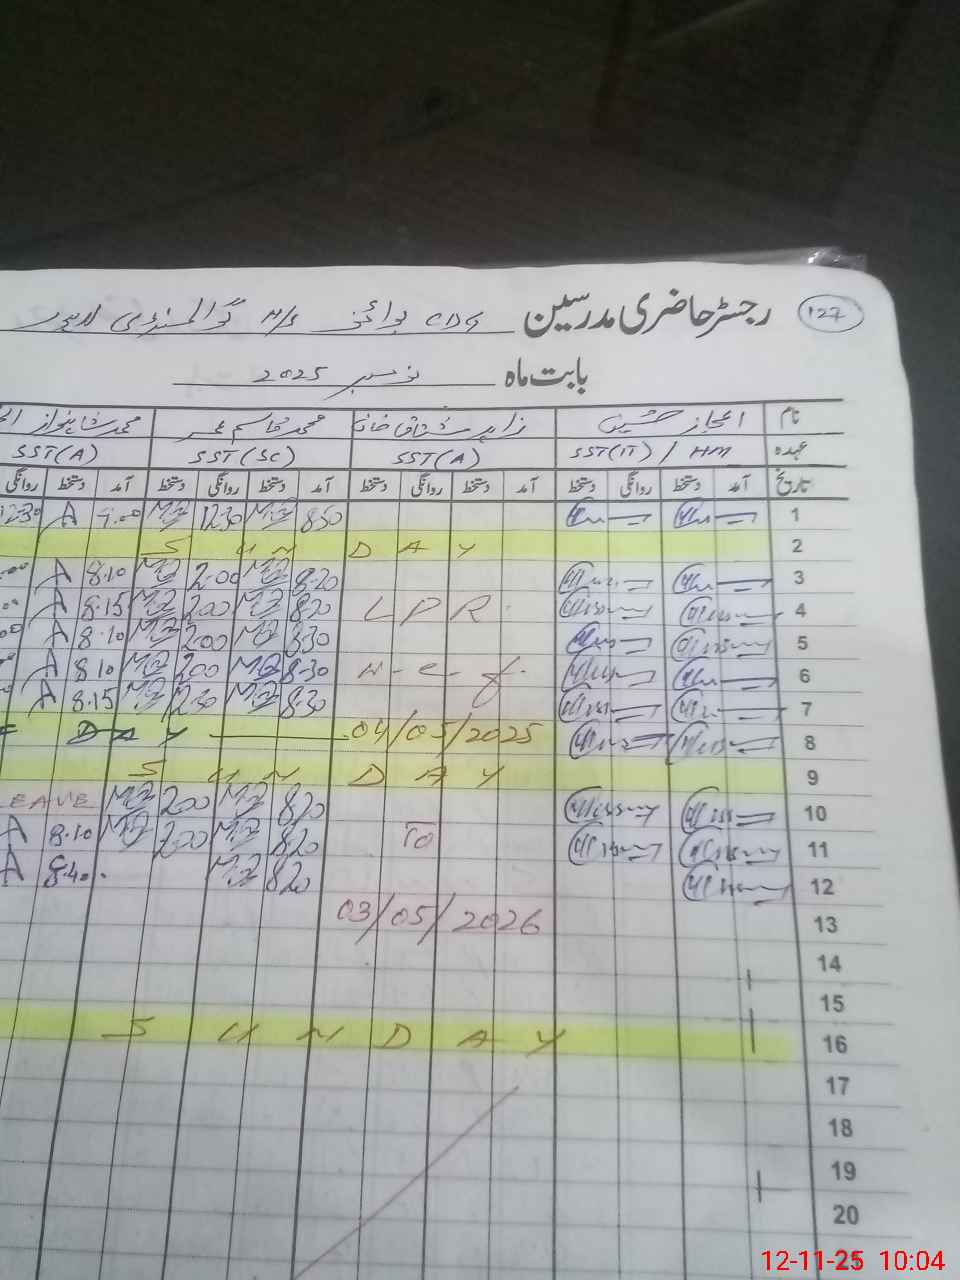 127
رجسٹر حاضری مدرسین CDG بوائز H/S گوالمنڈی لاہور
بابت ماہ نومبر 2025
نام اعجاز حسین زاہد مشتاق خان محمد قاسم عمر محمد شاہنواز
عہدہ SST(IT) / HM SST(A) SST(SC) SST(A)
تاریخ آمد دستخط روانگی دستخط آمد دستخط روانگی دستخط آمد دستخط روانگی دستخط آمد دستخط روانگی
1 8.30 12.30 9.00 A 12.30
2 S U N D A Y
3 8.20 2.00 8.10 A
4 L P R. 8.20 2.00 8.15 A
5 8.30 2.00 8.10 A
6 w-e-f. 8.30 2.00 8.10 A
7 8.30 2.30 8.15 A
8 04/05/2025 DAY
9 S U N D A Y
10 8.20 2.00 LEAVE
11 To 8.20 2.00 8.10 A
12 8.20 8.40. A
13 03/05/2026
14
15
16 S U N D A Y
17
18
19
20
21
12-11-25 10:04